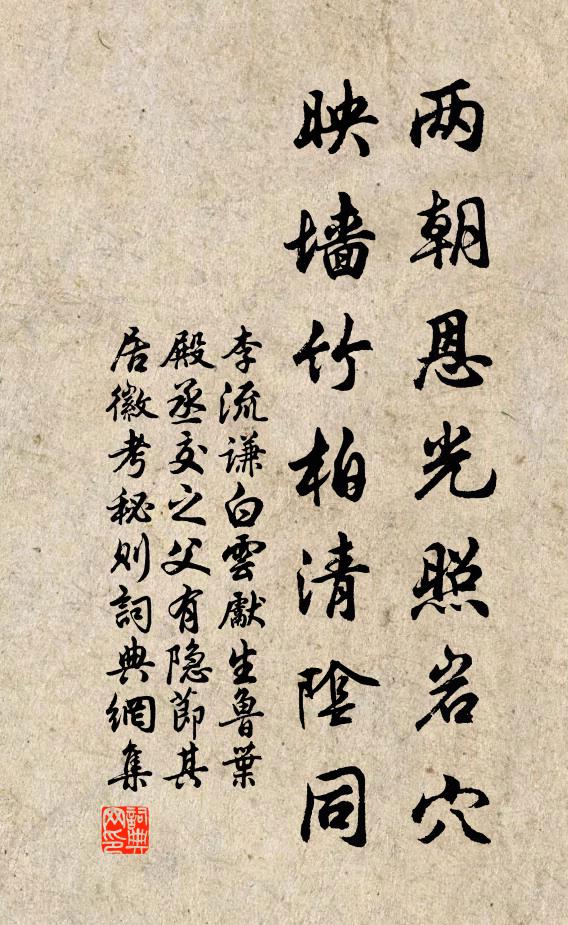 两朝恩光照岩穴
映墙竹柏清阴同
李流谦白雲獻生鲁葉
殿丞交之父有隐節其
居徽考秘则詞典網集
詞典网印